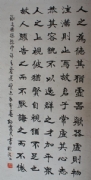 人之為德其猶虛器歟器虛則物
注滿則止焉故君子常虛其心志
恭其容貌不以逸群之才加乎眾
人之上視彼猶賢自視猶不足也
故人願告之而不厭誨之而不倦